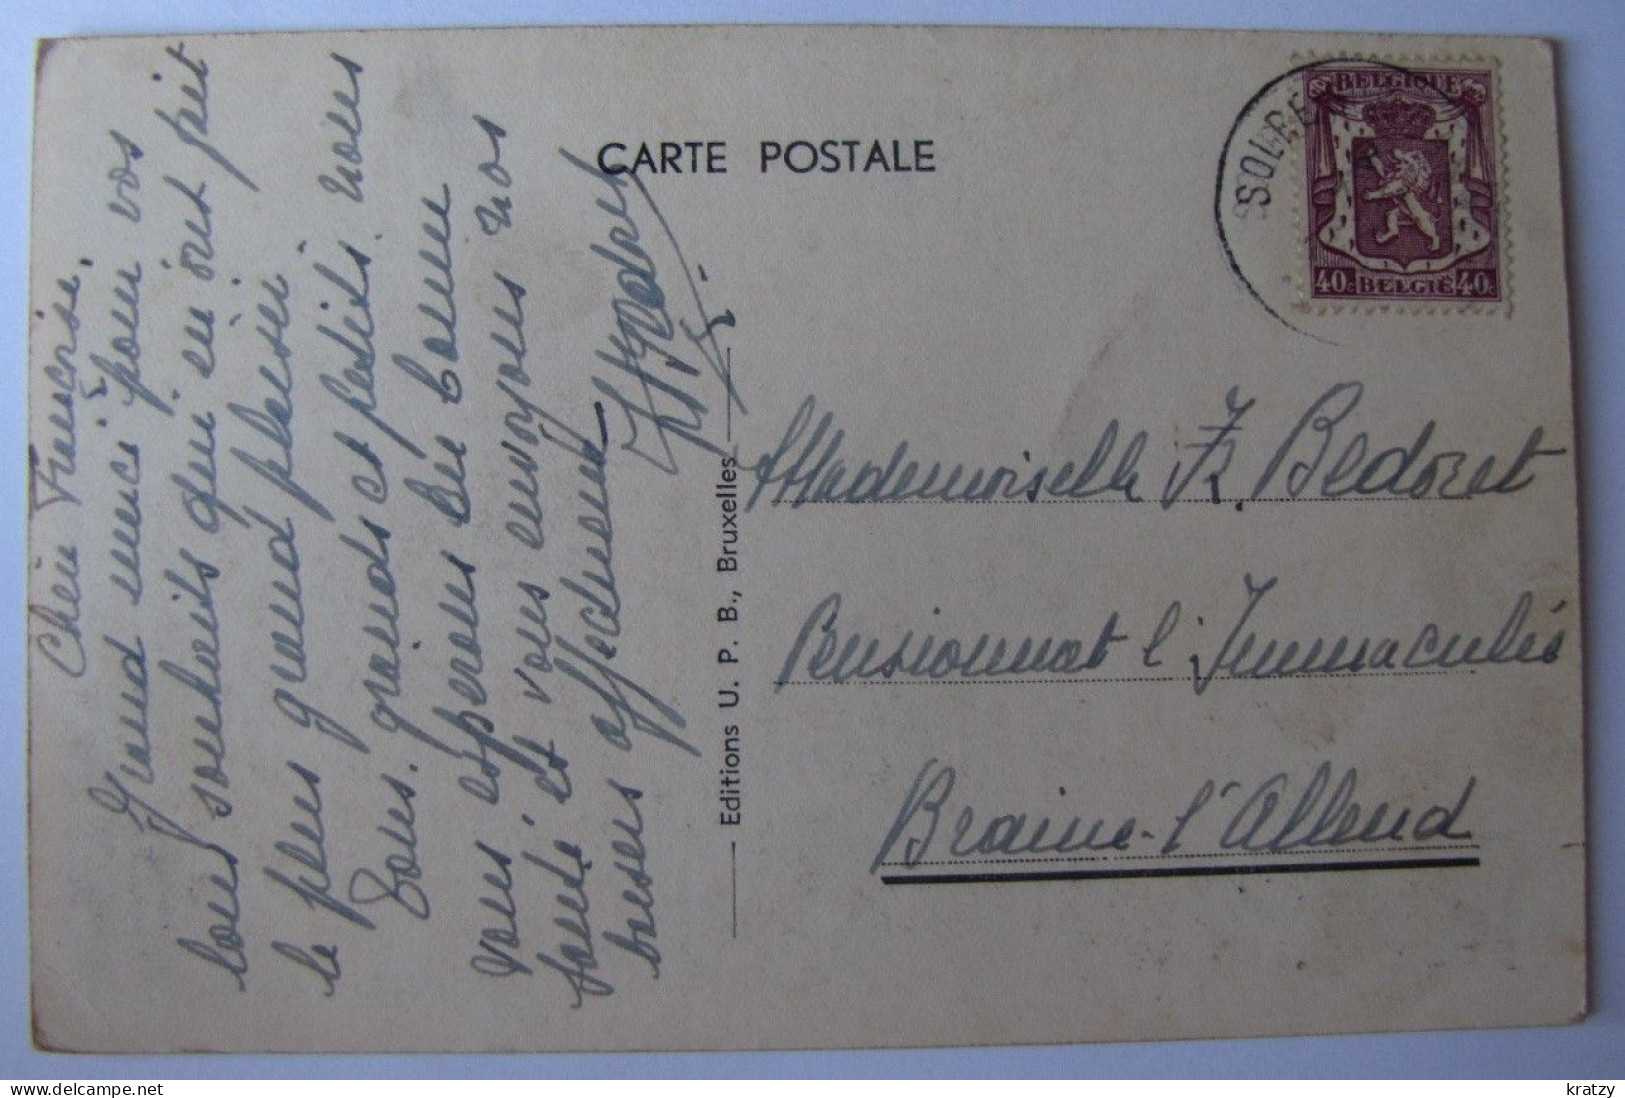 Chère Francoise,
Grand merci pour vos
bons souhaits qui m'ont fait
le plus grand plaisir.
Tous, grands et petits, nous
vous espérons en bonne
santé et vous envoyons nos
baisers affectueux
CARTE POSTALE
Editions U. P. B., Bruxelles
SOLRE
BELGIQUE
40c BELGIË 40c
Mademoiselle F. Bedoret
Pensionnat l'Immaculée
Braine-l'Alleud
delcampe.net
kratzy